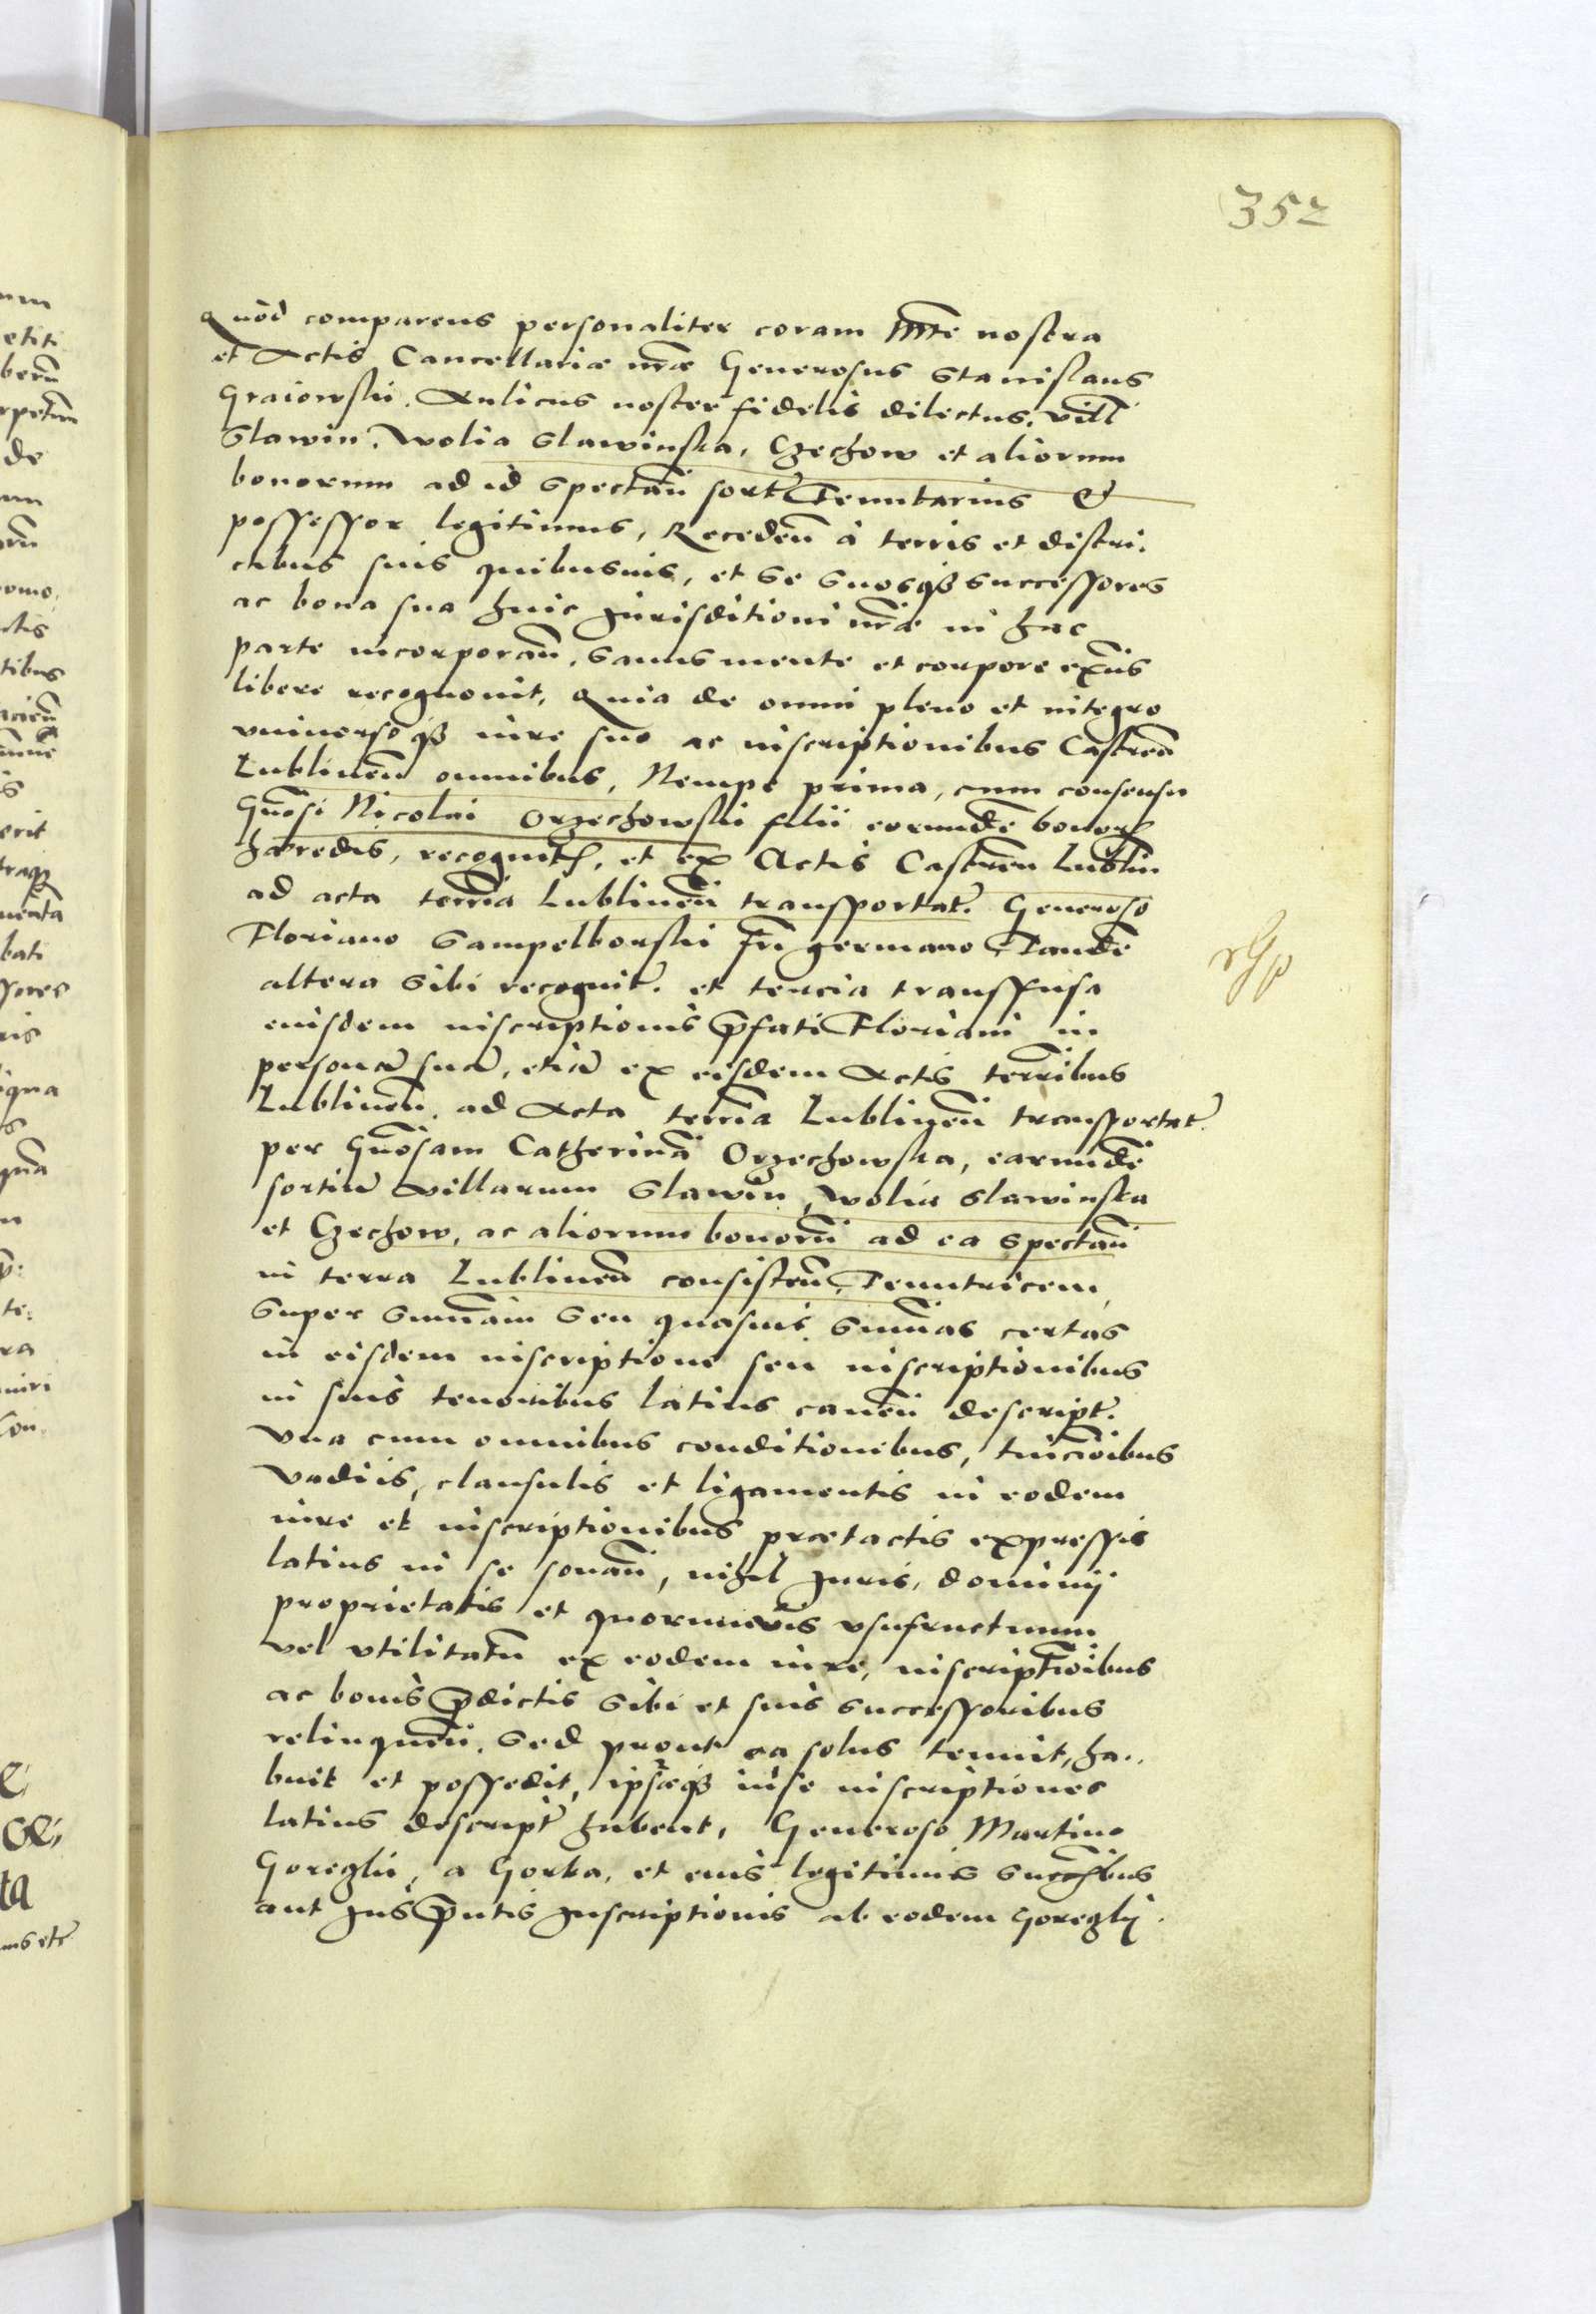 352
Quod comparens personaliter coram Mte nostra
et Actis Cancellariæ nræ Generosus Stanislaus
Graiowski. Aulicus noster fidelis dilectus. vill
Slawin. Wolia Slawinska, Czechow et aliorum
bonorum ad id Spectañ sort̃ Tenutarius &
possessor legitimus, Recedeñ à terris et distri,
ctibus suis quibusuis, et Se Suosq3 Successores
ac bona sua huic Jurisditioni nræ in hac
parte incorporañ, Sanus mente et corpore exñs
libere recognouit, Quia de omni pleno et integro
vniuersoq3 iure suo ac inscriptionibus Castreñ
Lublineñ omnibus, Nempe prima, cum consensu
Gñosi Nicolai Orzechowski filii eorundẽ bonoꝝ
hæredis, recognit, et ex Actis Castreñ Lubliñ
ad acta terria Lublineñ transportat̃. Generoso
Floriano Sampelborski fri germano Tandẽ
altera Sibi recognit̃. et tercia transfusa
eiusdem inscriptionis p̃fati Floriani in
personã suã, etiã ex eisdem Actis terribus
Lublineñ. ad Acta terria Lublineñ transportat̃.
per Gñosam Catherinã Orzechowska, earundẽ
sortiũ villarum Slawin, Wolia Slawinska
et Czechow, ac aliorum bonorũ ad ea Spectañ
in terra Lublineñ consisteñ, Tenutricem,
Super Sum̃am Seu quasuis Sum̃as certas
in eisdem inscriptione seu inscriptionibus
in suis tenoribus latius caueñ descript̃.
Vna cum omnibus conditionibus,
Vadiis, clausulis et ligamentis in eodem
iure et inscriptionibus prætactis expressis
latius in se sonañ, nihil Juris, dominij
proprietatis et quorumuis vsufructuum
vel vtilitatũ ex eodem iure, inscriptioibus
ac bonis p̃dictis Sibi et suis Successoribus
relinqueñ. Sed prout ea solus tenuit, ha,,
buit et possedit, ipsæq3 in se inscriptiones
latius descript̃ habent, Generoso Martino
Goreczki, a Gorka, et eius legitimis Succribus
aut Jus p̃ntis Inscriptionis ab eodem Goreczkj.